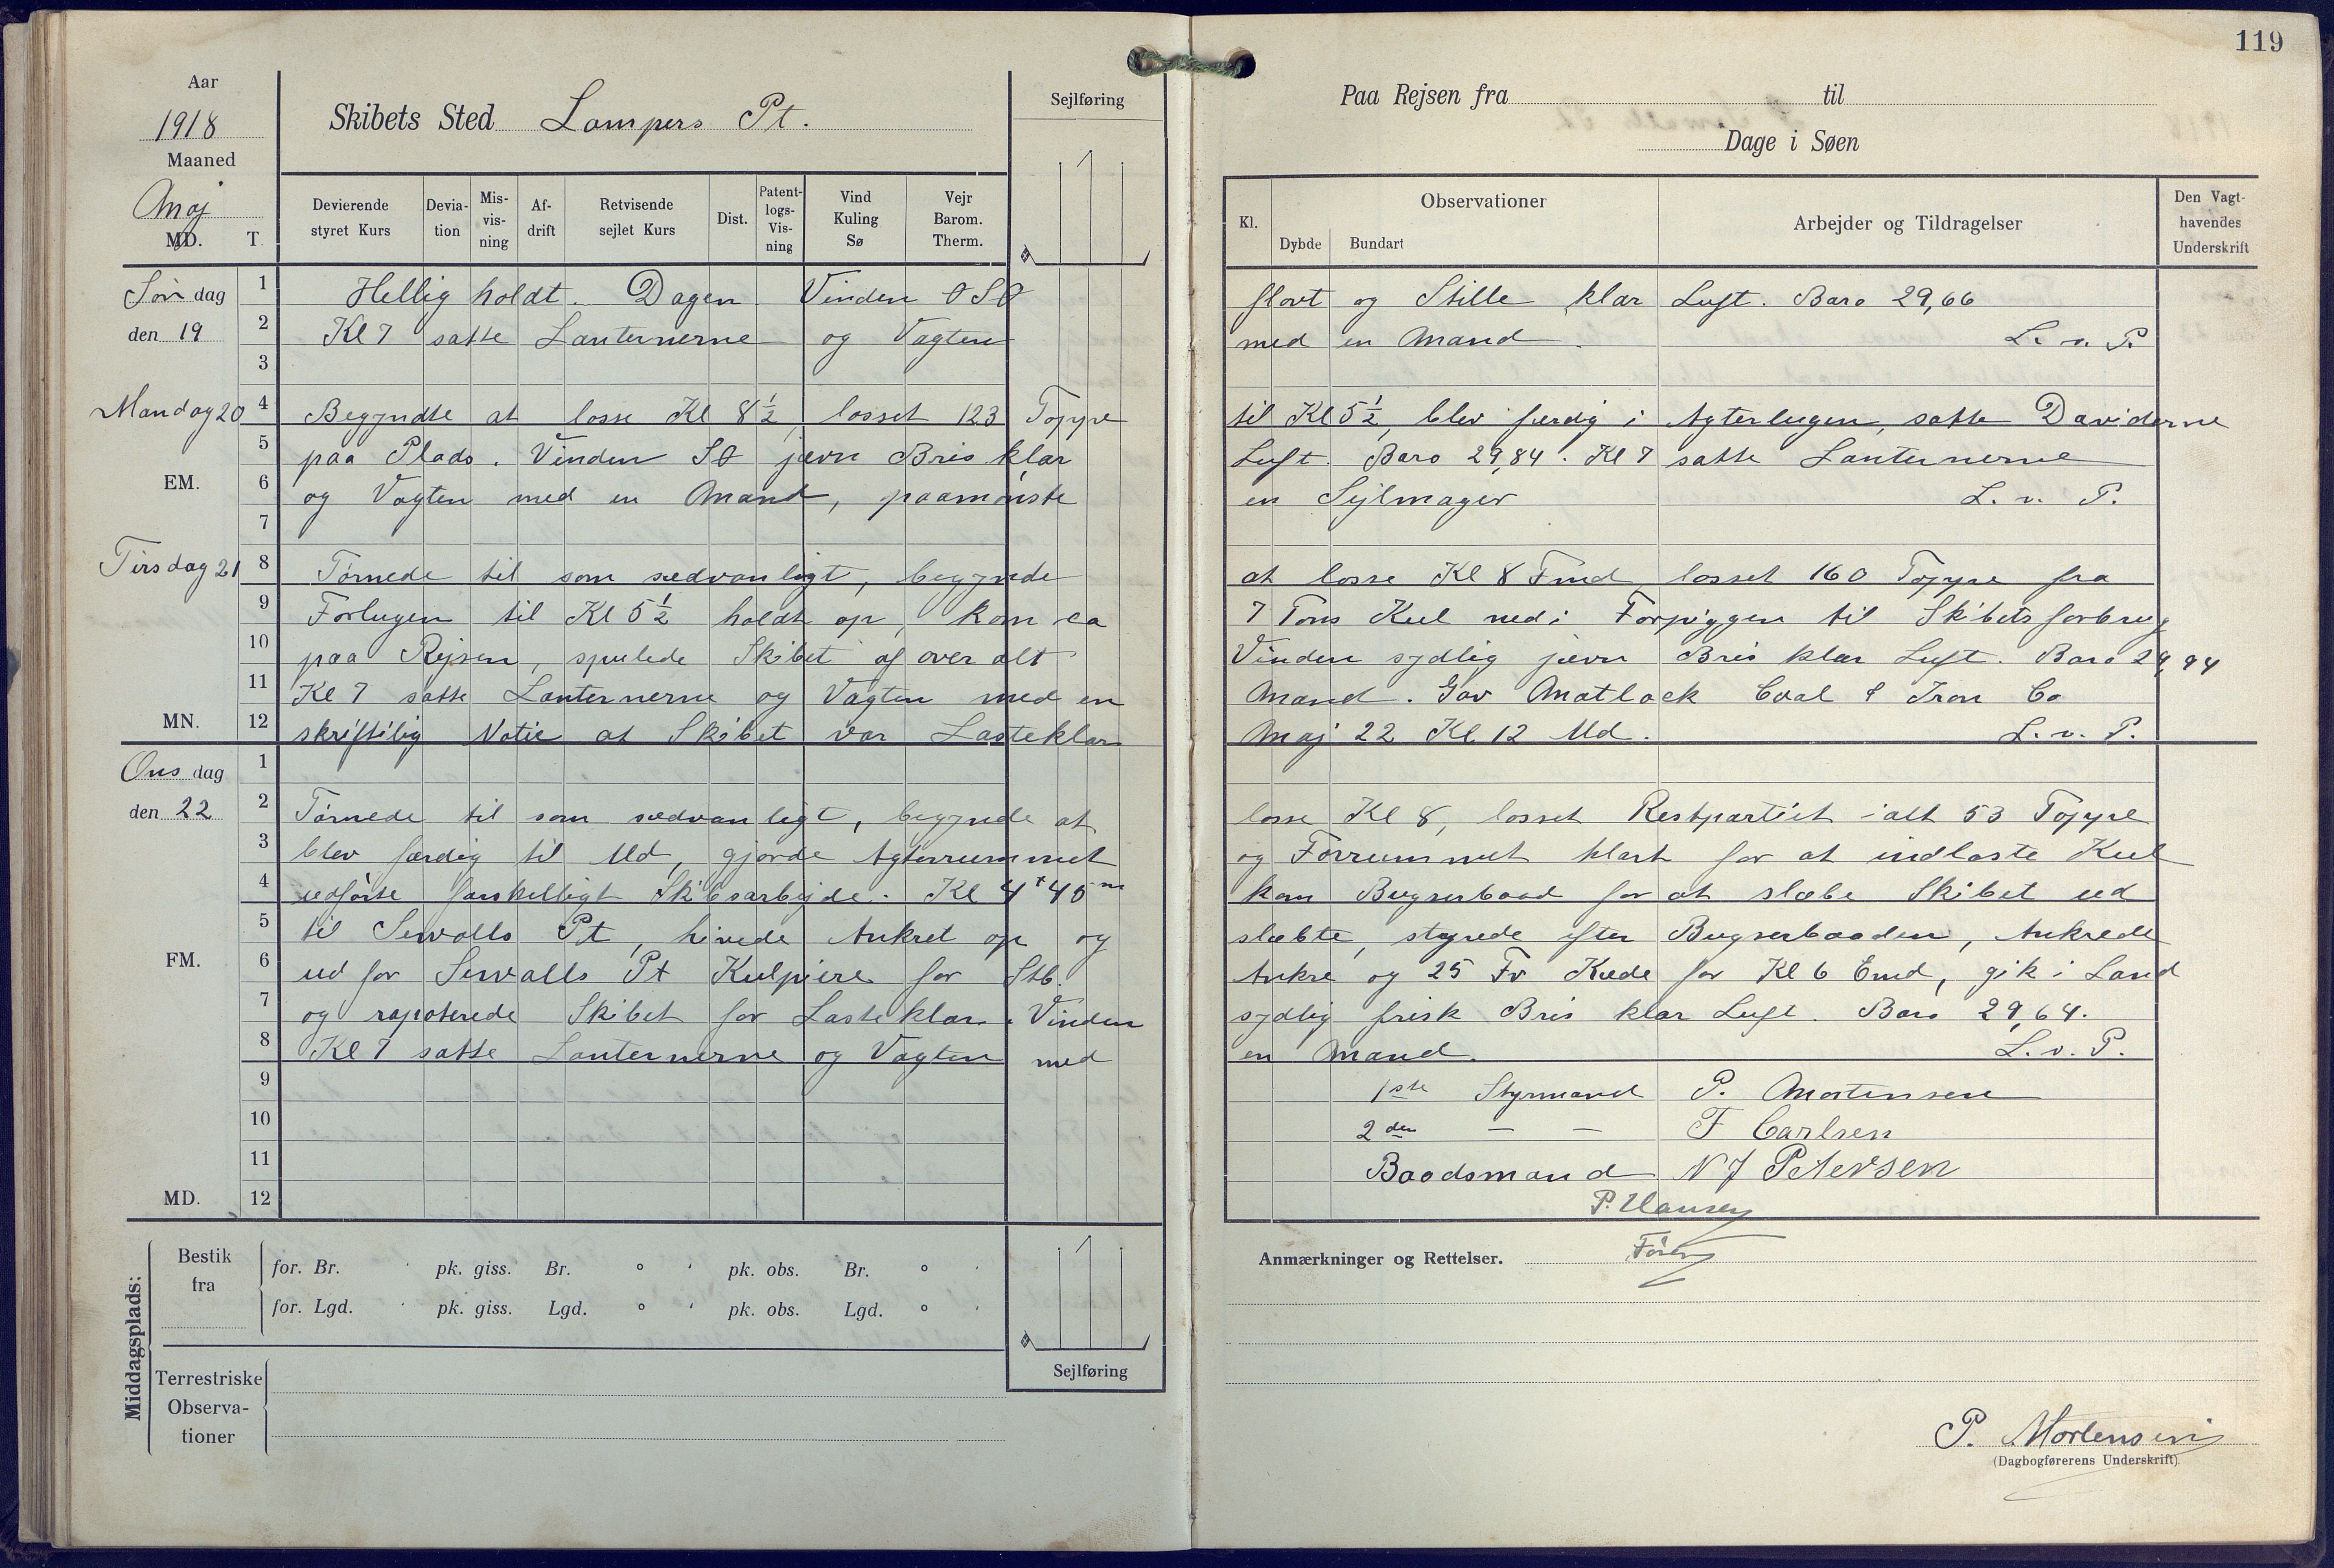 119
Aar
1918
Maaned
Maj
MD.
T.
Skibets Sted Lampers Pt.
Sejlføring
Devierende styret Kurs
Devia-tion
Mis-vis-ning
Af-drift
Retvisende sejlet Kurs
Dist.
Patent-logs-Vis-ning
Vind Kuling Sø
Vejr Barom. Therm.
Paa Rejsen fra til
Dage i Søen
Kl.
Observationer
Dybde
Bundart
Arbejder og Tildragelser
Den Vagt-havendes Underskrift
Søn dag
den 19
1 Hellig holdt. Dagen Vinden OSO flovt og Stille klar Luft. Baro 29,66
2 Kl 7 satte Lanternerne og Vagten med en Mand. L. v. P.
3
Mandag 20
4 Begyndte at losse Kl 8½, losset 123 Toppe til Kl 5½, blev færdig i Agterlugen, satte Daviderne
5 paa Plads. Vinden SO jævn Bris klar Luft. Baro 29,84. Kl 7 satte Lanternerne
EM.
6 og Vagten med en Mand, paamönste en Sejlmager L. v. P.
7
Tirsdag 21
8 Törnede til som sædvanligt, begynde at losse Kl 8 Fmd, losset 160 Toppe fra
9 Forlugen til Kl 5½ holdt op, kom ca 7 Tons Kul ned i Forpiggen til Skibets forbrug
10 paa Rejsen, spulede Skibet af over alt Vinden sydlig jævn Bris klar Luft. Baro 29,94
11 Kl 7 satte Lanternerne og Vagten med en Mand. Gav Matlack Coal & Iron Co
MN.
12 skriftilig Notic at Skibet var Lasteklar Maj 22 Kl 12 Md. L. v. P.
Ons dag
den 22
1
2 Törnede til som sædvanligt, begynde at losse Kl 8, losset Restpartiet ialt 53 Toppe
3 blev færdig til Md, gjorde Agterrummet og Forrummet klart for at indlaste Kul
4 udförte forskelligt Skibsarbejde. Kl 4 t 40 m kom Bugserbaad for at slæbe Skibet ud
5 til Sewalls Pt, hivede Ankret op og slæbte, styrede efter Bugserbaaden, Ankrede
FM.
6 ud for Sewalls Pt Kulpiere for Stb. Ankre og 25 Fv Kæde for Kl 6 Emd, gik i Land
7 og rapoterede Skibet for Lasteklar. Vinden sydlig frisk Bris klar Luft. Baro 29,64.
8 Kl 7 satte Lanternerne og Vagten med en Mand. L. v. P.
9 1ste Styrmand P. Mortensen
10 2den — — F Carlsen
11 Baadsmand N J Petersen
MD.
12 P. Hansen
Förer
Middagsplads:
Bestik fra
for. Br. ' pk. giss. Br. ° ' pk. obs. Br. ° '
for. Lgd. ' pk. giss. Lgd. ° ' pk. obs. Lgd. ° '
Terrestriske Observa-tioner
Sejlføring
Anmærkninger og Rettelser.
P. Mortensen
(Dagbogførerens Underskrift)